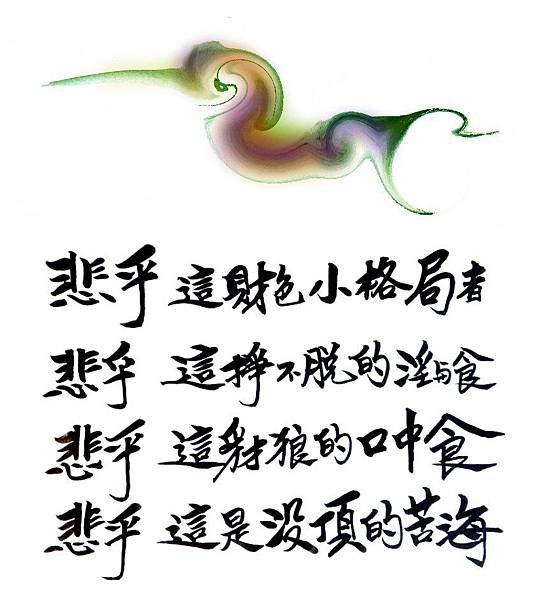 悲乎 這財色小格局者
悲乎 這掙不脫的淫與食
悲乎 這豺狼的口中食
悲乎 這是沒頂的苦海